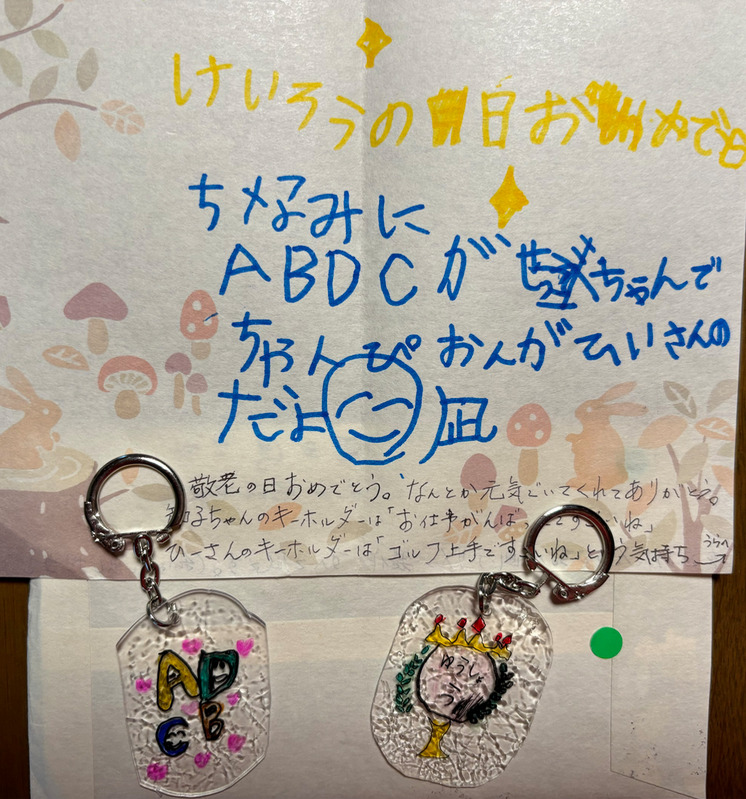 けいろうの日おめでと
ちなみに
ABDCがちゃんで
ちゃんぴおんがひいさんの
だよ 凪
敬老の日おめでとう。なんとか元気でいてくれてありがとう。
ちゃんのキーホルダーは「お仕事がんばっ
ひーさんのキーホルダーは「ゴルフ上手です ね」と 気持ち
うらへ
A D
C B
ゆうしょ
う